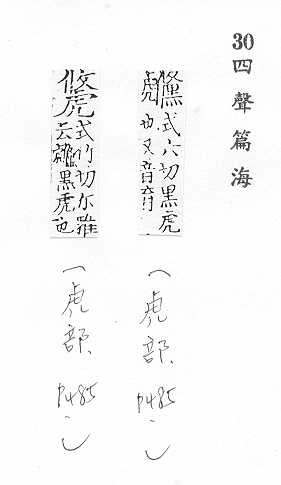 30 四聲篇海
虪式六切黑虎
也又音育
（虎部、P485。）
式竹切尔雅
云虪黑虎也
（虎部、P485。）